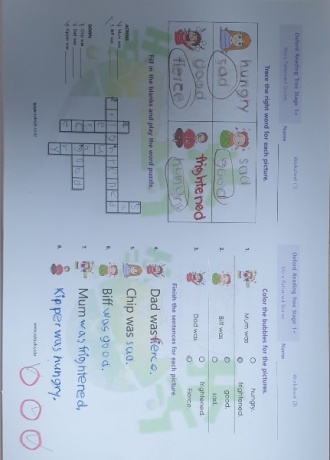 Oxford Reading Tree Stage 1+
Worksheet (1)
Name
Trace the right word for each picture.
hungry
sad
sad
good
good
fierce
frightened
hungry
Fill in the blanks and play the word puzzle.
ACROSS
DOWN
Oxford Reading Tree Stage 1+
Worksheet (2)
Name
Color the bubbles for the pictures.
1.
Mum was
hungry.
frightened.
2.
Biff was
good.
sad.
3.
Dad was
frightened.
fierce.
Finish the sentences for each picture.
4.
Dad was fierce.
5.
Chip was sad.
6.
Biff was good.
7.
Mum was frightened.
8.
Kipper was hungry.